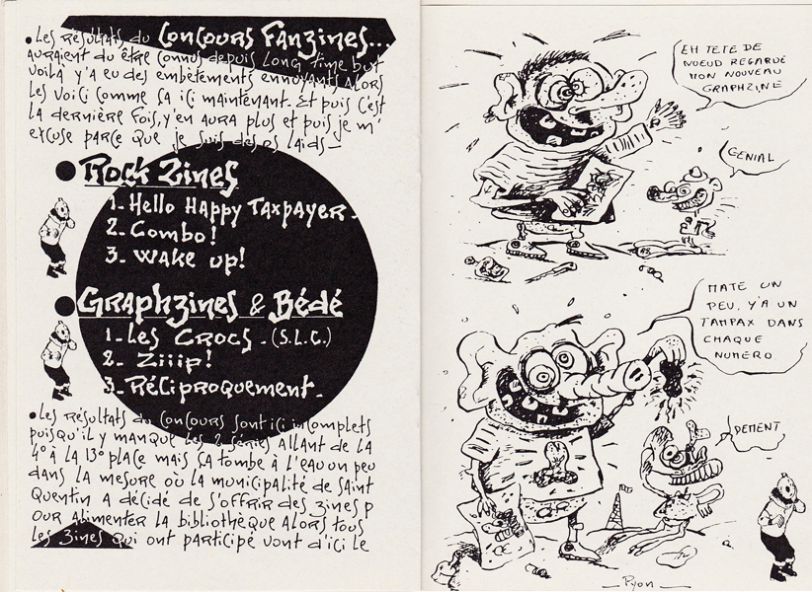 • Les résultats du Concours Fanzines...
auraient du être connus depuis long time but
voilà y'a eu des embêtements ennuyants alors
les voici comme sa ici maintenant. Et puis c'est
la dernière fois, y'en aura plus et puis je m'
excuse parce que je suis des os laids -
● Rock Zines
1. Hello Happy Taxpayer.
2. Combo!
3. Wake up!
● Graphzines & Bédé
1. Les Crocs. (S.L.C.)
2. Ziiip!
3. Réciproquement.
• Les résultats du Concours sont ici incomplets
puisqu'il y manque les 2 séries allant de la
4° à la 13° place mais sa tombe à l'eau un peu
dans la mesure où la municipalité de Saint
Quentin a décidé de s'offrir des zines p
our alimenter la bibliothèque alors tous
les zines qui ont participé vont d'ici le
EH TETE DE
NOEUD REGARDE
MON NOUVEAU
GRAPHZINE
GENIAL
MATE UN
PEU, Y'A UN
TAMPAX DANS
CHAQUE
NUMERO
DEMENT
Pyon